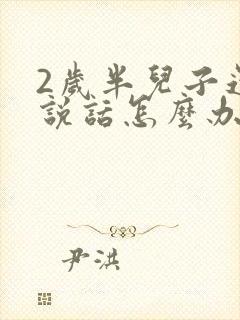 2歲半兒子
說話怎麼办
尹洪